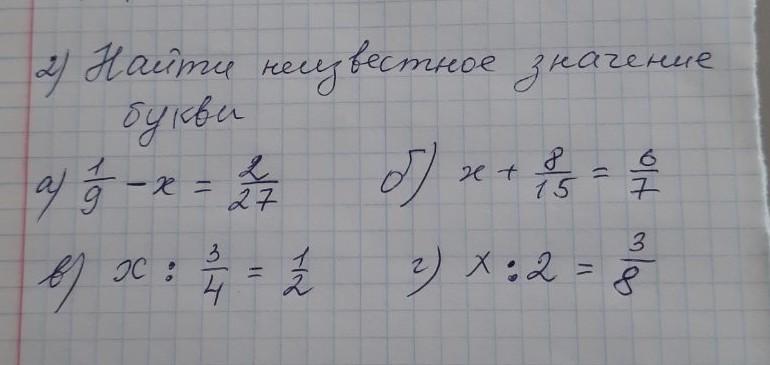 2) Найти неизвестное значение
буквы
а) 1/9 - x = 2/27 б) x + 8/15 = 6/7
в) x : 3/4 = 1/2 г) x : 2 = 3/8